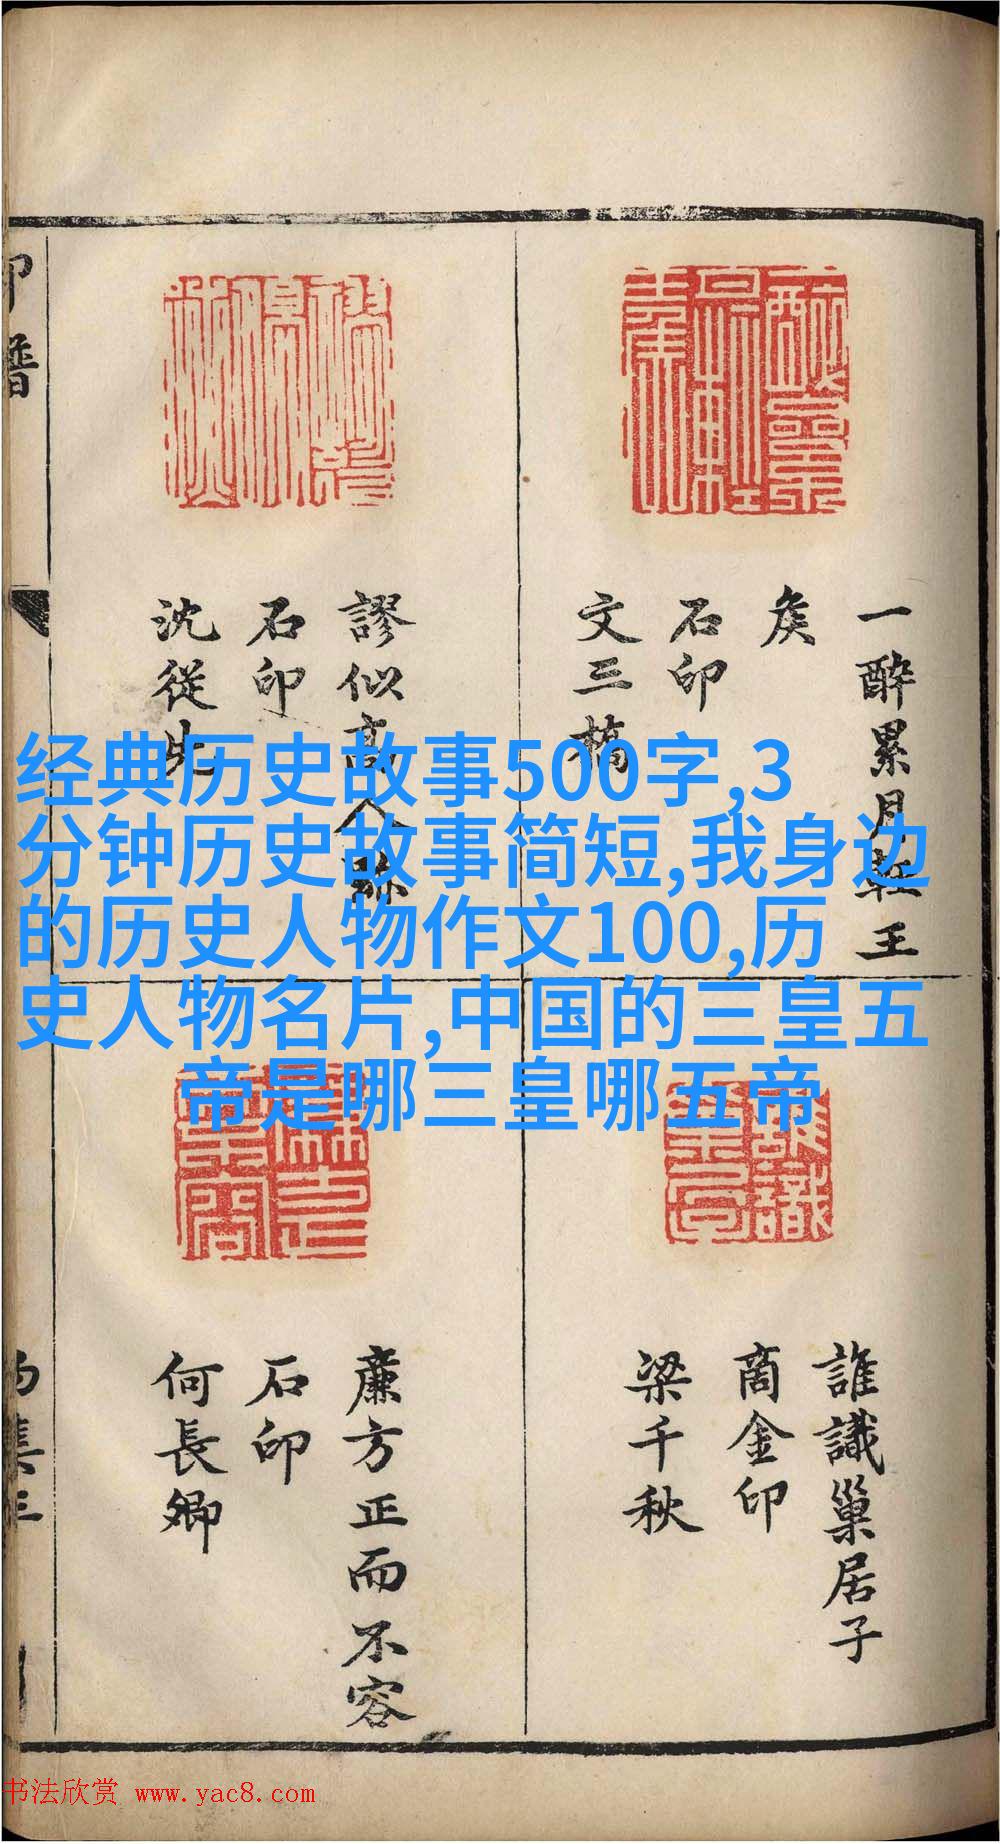 一醉累月輕王
矦
石印
文三橋
謬似高人跡
石印
沈從先
经典历史故事500字,3
分钟历史故事简短,我身边
的历史人物作文100,历
史人物名片,中国的三皇五
帝是哪三皇哪五帝
誰識巢居子
商金印
梁千秋
廉方正而不容
石印
何長卿
书法欣赏 www.yac8.com